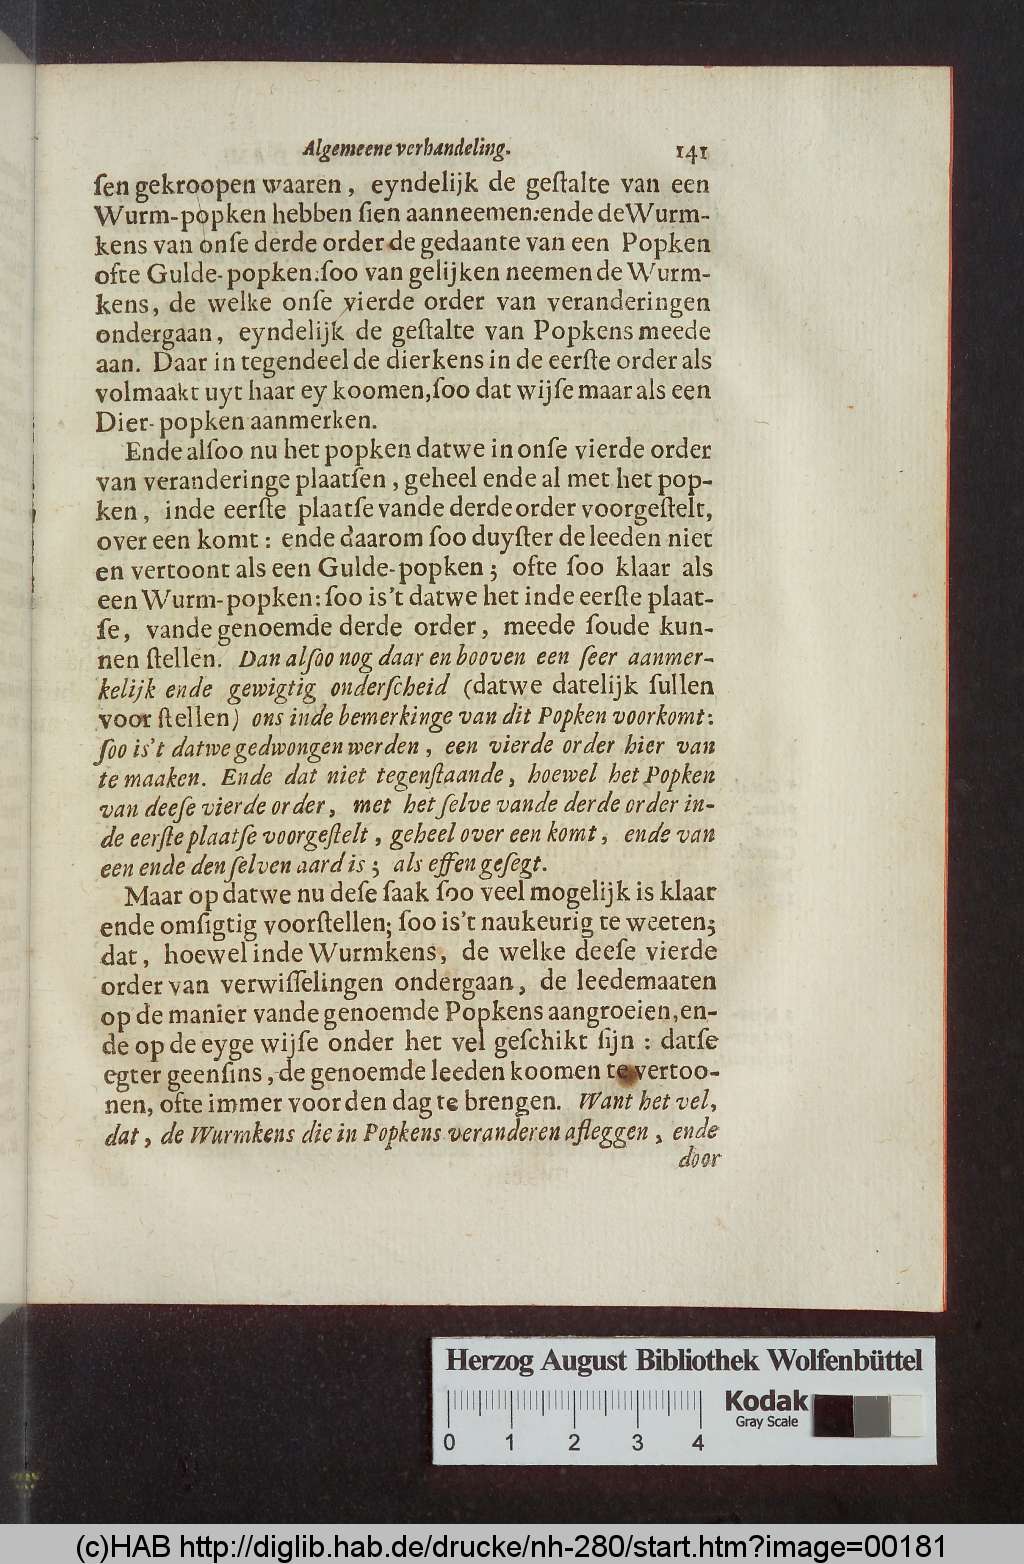 Algemeene verhandeling. 141
ſen gekroopen waaren, eyndelijk de geſtalte van een
Wurm-popken hebben ſien aanneemen: ende de Wurm-
kens van onſe derde order de gedaante van een Popken
ofte Gulde-popken: ſoo van gelijken neemen de Wurm-
kens, de welke onſe vierde order van veranderingen
ondergaan, eyndelijk de geſtalte van Popkens meede
aan. Daar in tegendeel de dierkens in de eerſte order als
volmaakt uyt haar ey koomen, ſoo dat wijſe maar als een
Dier-popken aanmerken.
Ende alſoo nu het popken datwe in onſe vierde order
van veranderinge plaatſen, geheel ende al met het pop-
ken, inde eerſte plaatſe vande derde order voorgeſtelt,
over een komt: ende daarom ſoo duyſter de leeden niet
en vertoont als een Gulde-popken; ofte ſoo klaar als
een Wurm-popken: ſoo is't datwe het inde eerſte plaat-
ſe, vande genoemde derde order, meede ſoude kun-
nen ſtellen. Dan alſoo nog daar en booven een ſeer aanmer-
kelijk ende gewigtig onderſcheid (datwe datelijk ſullen
voor ſtellen) ons inde bemerkinge van dit Popken voorkomt:
ſoo is't datwe gedwongen werden, een vierde order hier van
te maaken. Ende dat niet tegenſtaande, hoewel het Popken
van deeſe vierde order, met het ſelve vande derde order in-
de eerſte plaatſe voorgeſtelt, geheel over een komt, ende van
een ende den ſelven aard is; als effen geſegt.
Maar op datwe nu deſe ſaak ſoo veel mogelijk is klaar
ende omſigtig voorſtellen; ſoo is't naukeurig te weeten;
dat, hoewel inde Wurmkens, de welke deeſe vierde
order van verwiſſelingen ondergaan, de leedemaaten
op de manier vande genoemde Popkens aangroeien, en-
de op de eyge wijſe onder het vel geſchikt ſijn: datſe
egter geenſins, de genoemde leeden koomen te vertoo-
nen, ofte immer voor den dag te brengen. Want het vel,
dat, de Wurmkens die in Popkens veranderen afleggen, ende
door
Herzog August Bibliothek Wolfenbüttel
Kodak
Gray Scale
0 1 2 3 4
(c)HAB http://diglib.hab.de/drucke/nh-280/start.htm?image=00181